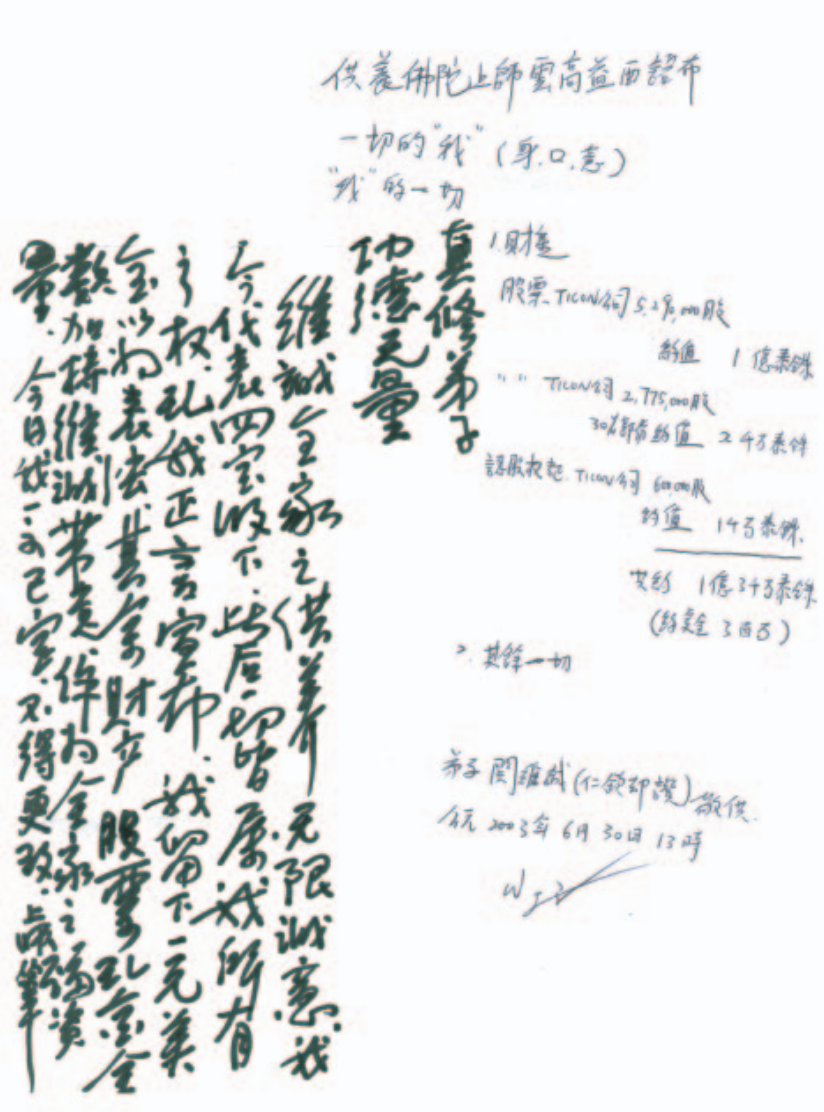 供養佛陀上師雲高益西諾布
一切的"我" (身.口.意)
"我"的一切
1.財產
股票 TICON公司 5,290,000股
約值 1億泰銖
" " TICON公司 2,775,000股
約值 2千万泰銖
TICON公司 600,000股
約值 1千万泰銖
1億3千万泰銖
(約美金 3百万)
2. 其餘一切
弟子 關維誠 (仁欽却讚) 敬供
公元 2003年 6月 30日 13時
真修弟子
功德无量
維誠全家之供养无限誠意.我
今代表四宝收下.此后一切皆属我所有
之权.现我正言宣布.我留下一元美
金以为表法.其余財产股票现金全
数加持維誠带走.作为全家之福資
量.今日我言已定.不得更改.